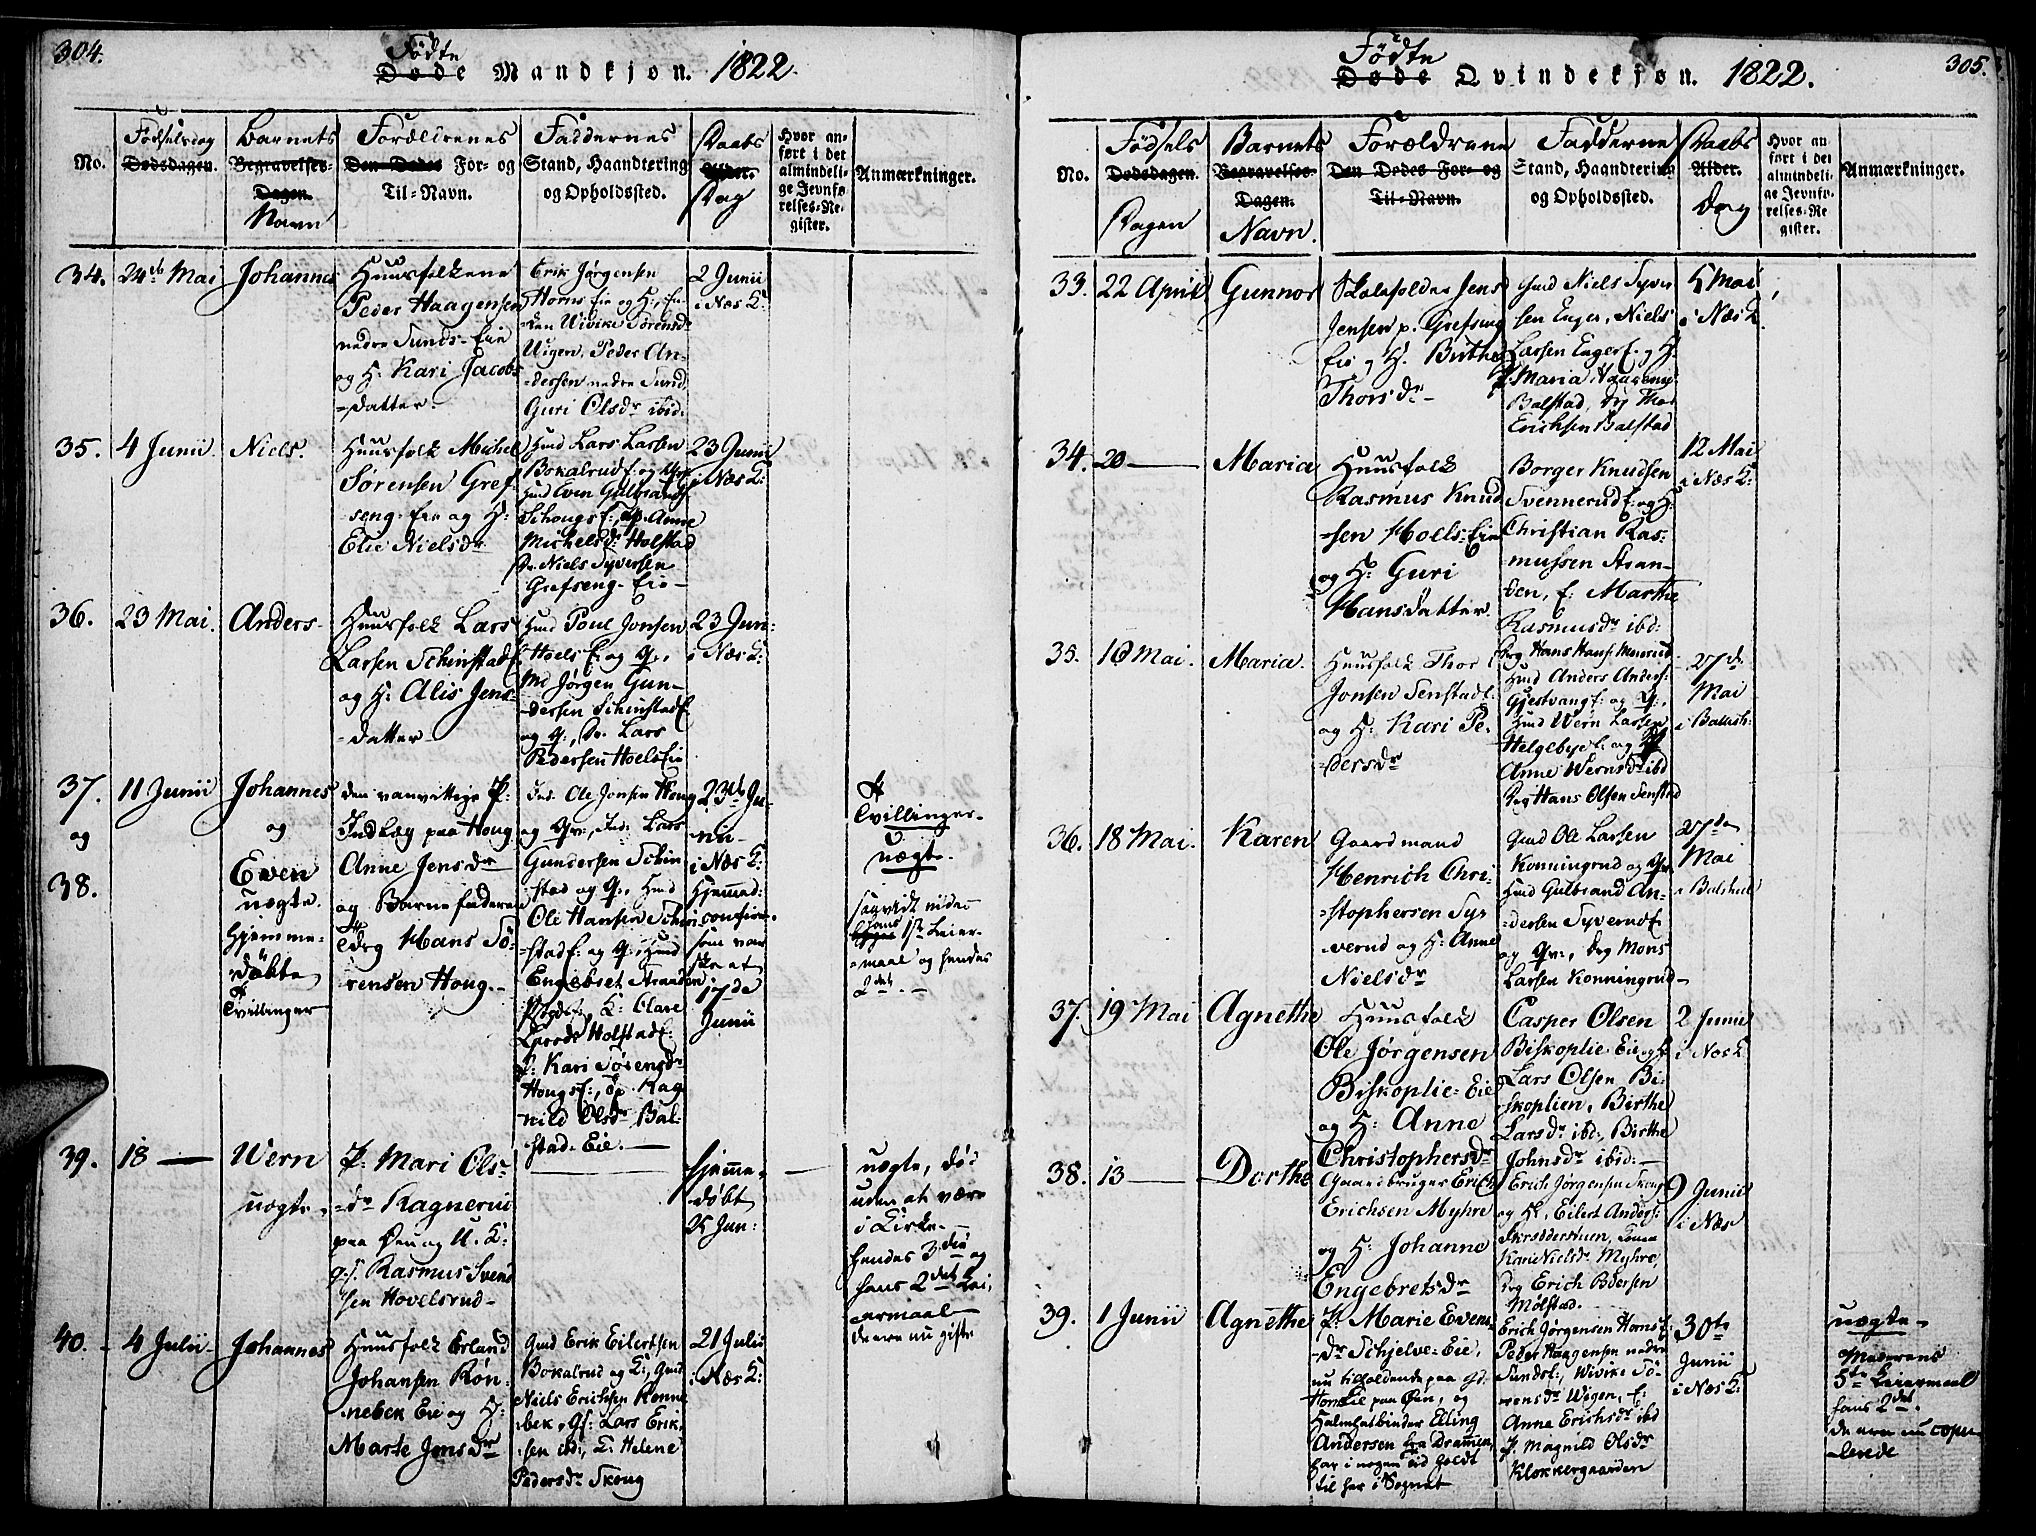 304.
Födte
Døde Mandkjøn. 1822.
No.
Födselsdag
Dødsdagen.
Barnets
Begravelses-
Dagen.
Navn
Forældrenes
Den Dødes For- og
Til-Navn.
Faddernes
Stand, Haandtering
og Opholdssted.
Daabs
Alder.
Dag
Hvor an-
ført i det
almindeli-
ge Jevnfø-
relses-Re-
gister.
Anmærkninger.
34. 24de Mai
Johannes
Huusfolkene
Peder Haagensen
nedre Sunds-Eie
og H: Kari Jacobs
-datter.
Erik Jørgensen
Horns Eie og H:
Wivike Sørensdr
Wigen, Peder An-
-dersen nedre Sund,
Guri Olsdr ibid:
2 Junii
i Næs K:
35. 4 Junii.
Niels.
Huusfolk Michel
Sørensen Gref
-seng-Eie og H:
Elie Nielsdr
Huusmd Lars Larsen
Bokalrud E: og Qv:
Huusmd Even Gulbrands
Schougs E:, Anne
Michelsdr Holstad
Niels Syversen
Grefseng-Eie-
23 Junii
i Næs K:
36. 23 Mai.
Anders-
Huusfolk Lars
Larsen Schinstad E
og H: Alis Jens-
-datter-
Huusmd Poul Jonsen
Hoels E: og Q:,
Md Jørgen Gun-
-dersen Schinstad E
og Q:, Dr. Lars
Pedersen Hoels Eie
23 Juni:
i Næs K:
37.
og
38.
11 Junii
Johannes
og
Even
uægte
hjemme-
døbte
Tvillinger
den vanvittige P:
Indlæg paa Houg
Anne Jensdr
og Barnefaderen
Hans Sö-
rensen Houg.-
Ole Jonsen Houg
og Qv:, Lars
Gundersen Schin
-stad og Q:, Huusmd
Ole Hansen Schin
-stad E: og Q:, Huusmd
Engebret Stranden
Holstad E:
P: Kari Sörensdr
Hougs E:, Rag
nild Olsdr Bal-
stad-Eie.-
23de Ju-
nii-
i Næs K:
hjemmed:
confirm:
som var
skeet
17de
Junii
Tvillinger-
uægte.
sagvidt vides
hans 1ste Leier-
-maal og hendes
2det.-
39. 18 -
Wern
uægte.
P: Mari Ols-
-dr Ragnerud
paa Öen og U. K:
Rasmus Svend
sen Hovelsrud-
hjemme-
-døbt
25 Jun:
uægte, död
uden at være
i Kirke.-
hendes 3die og
hans 2det Lei-
-ermaal
de ere nu gifte
40. - 4 Julii-
Johannes
Huusfolk Erland
Johansen Rön-
-nebek Eie og H:
Marte Jensdr
Gmd Erik Eilertsen
Bokalrud og K:, Gmd
Niels Erichsen Rønne
-bek, Lars Erik-
-sen ibd:, K: Helene
Pedersdr Skoug
21 Julii
i Næs K:
305.
Födte
Døde Qvindekjøn. 1822.
No.
Födsels
Dødsdagen.
Dagen
Barnets
Begravelses-
Dagen.
Navn.
Forældrene
Den Dødes For- og
Til-Navn.
Fadderne
Stand, Haandtering
og Opholdssted.
Daabs
Alder.
Dag
Hvor an
ført i det
almindeli-
ge Jevnfø-
relses-Re
gister.
Anmærkninger.
33. 22 April
Gunnor
Skoleholder Jens
Jensen p. Grefseng
Eie og H. Birthe
Thorsdr-
Gmd Niels Syver
sen Enger, Niels
Larsen Enger E. og H:
P: Maria Haagensdr
Balstad,
Erichsen Balstad
5 Mai
i Næs K.
34. 20 -
Maria
Huusfolk
Rasmus Knud
-sen Hoels-Eie
og H: Guri
Hansdatter.
Borger Knudsen
Svennerud E: og H:
Christian Ras-
-mussen Stran-
den, E: Marthe
Rasmusdr ibd:
12 Mai
i Næs K:
35. 16 Mai.
Maria.
Huusfolk Thor
Jonsen Senstad E:
og H: Kari Pe-
-dersdr
Hans Hans:
Huusmd Anders Anders:
Gjestvang E: og Q:,
Huusmd Wern Larsen
Helgebye E: og
Anne Wernsdr ibd
Hans Olsen Senstad
27de
Mai
i Balsth:
36. 18 Mai.
Karen
Gaardmand
Henrich Chri-
-stophersen Sy-
verud og H: Anne
Nielsdr
Gmd Ole Larsen
Konningrud og Qv
Huusmd Gulbrand An-
-dersen Syverud E
og Qv:, Mons
Larsen Konningrud-
27de
Mai
i Balsted
37. 19 Mai
Agnethe
Huusfolk
Ole Jørgensen
Biskoplie-Eie
og H: Anne
Christophersdr
Casper Olsen
Biskoplie Eie og H
Lars Olsen Bi-
-skoplien, Birthe
Larsdr ibd:, Birthe
Johnsdr ibid:-
2 Junii
i Næs K
38. 13 -
Dorthe
Gaardbruger Erich
Erichsen Myhre
og H: Johanne
Engebretsdr
Erich Jørgensen Skoug
og H:, Eilert Anders:
Skrædderstuen, Kone
Karie Nielsdr Myhre,
Erich Pedersen
Mølstad.
9 Junii
i Næs
39. 1 Junii
Agnethe
P: Marie Evens-
-dr Schjelve-Eie,
nu tilholdende paa
Horns Eie paa Öen, og
Halmhatbinder Elling
Andersen fra Drammen,
har i nogen tid holdt
til her i Sognet
Erich Jørgensen Horns E:
Peder Haagensen nedre
Sunds E:, Wivike Sö-
rensdr Wigen, E:
Anne Erichsdr ibd
P. Magnild Olsdr
Klokkergaarden
30te
Junii
i Næs K:
uægte-
Moderens
5te Leiermaal
hans 2det.
de ere nu copu
-lerede